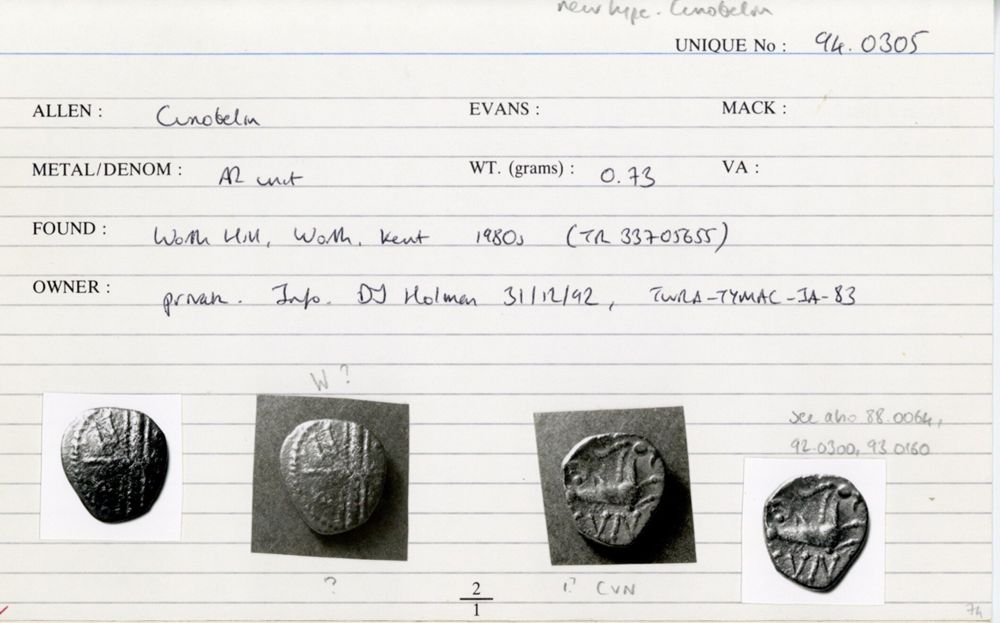 new type. Cunobelin
UNIQUE No : 94.0305
ALLEN : Cunobelin EVANS : MACK :
METAL/DENOM : AR unit WT. (grams) : 0.73 VA :
FOUND : Worth Hill, Worth, Kent 1980s (TR 33705655)
OWNER : private. Info. DJ Holman 31/12/92, TWRA-TYMAC-IA-83
W ?
see also 88.0064,
92.0300, 93.0160
VIN
VIN
?
!? CVN
2
1
74